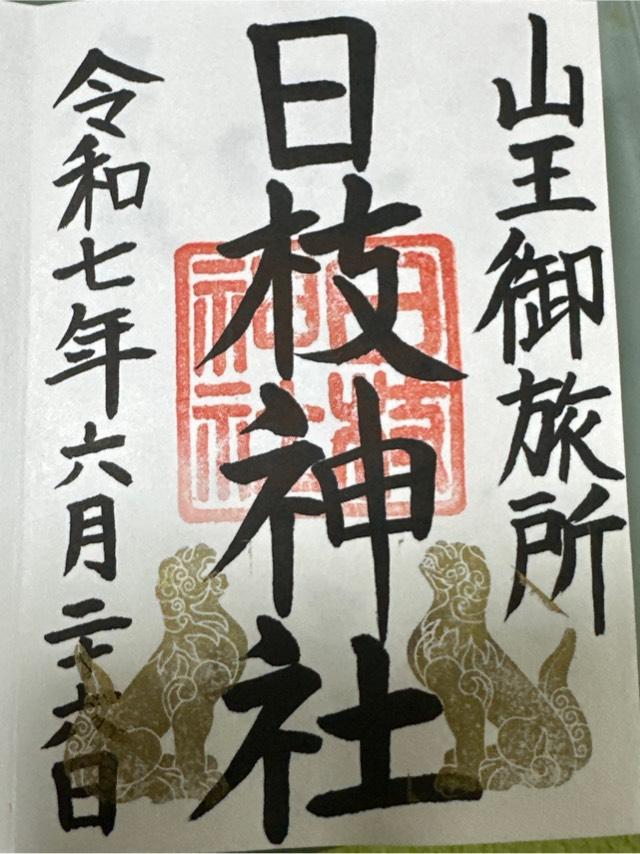 山王御旅所
日枝神社
日枝神社
令和七年六月二十九日